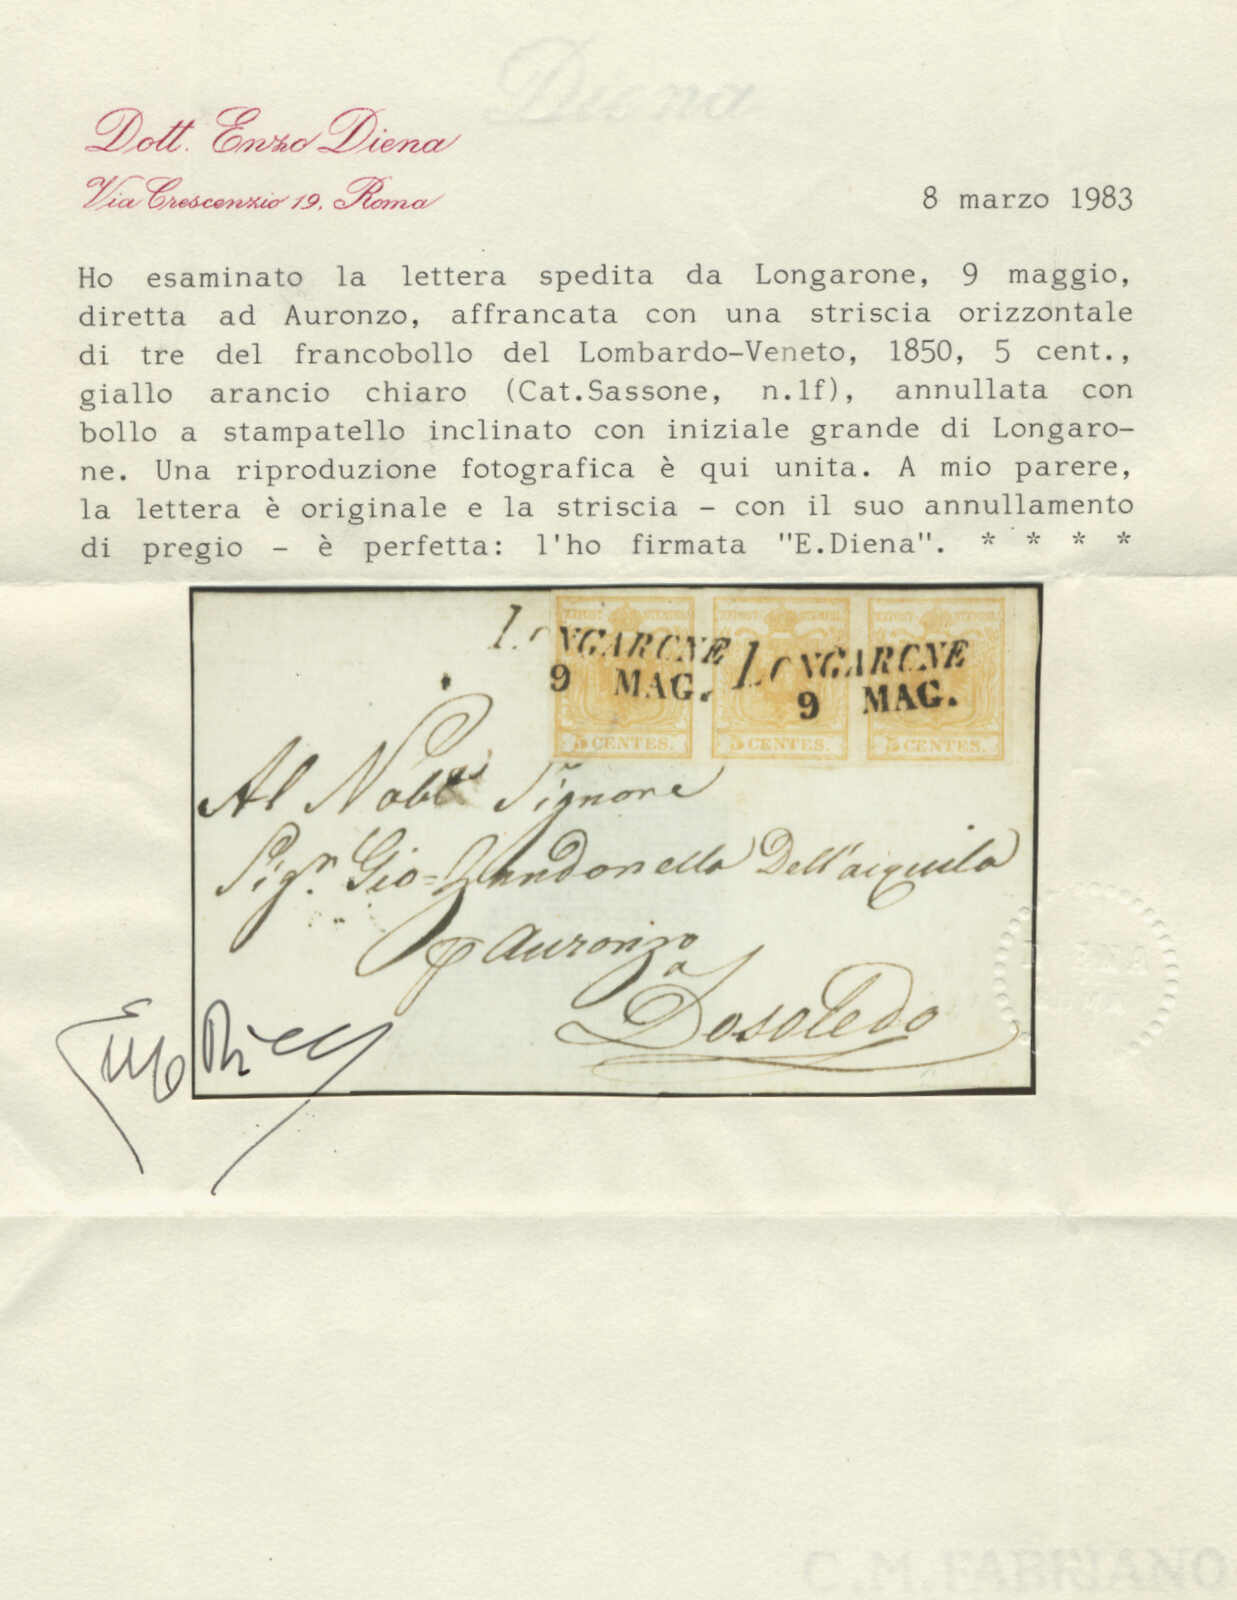 Diena
Dott. Enzo Diena
Via Crescenzio 19. Roma
8 marzo 1983
Ho esaminato la lettera spedita da Longarone, 9 maggio,
diretta ad Auronzo, affrancata con una striscia orizzontale
di tre del francobollo del Lombardo-Veneto, 1850, 5 cent.,
giallo arancio chiaro (Cat.Sassone, n.1f), annullata con
bollo a stampatello inclinato con iniziale grande di Longaro-
ne. Una riproduzione fotografica è qui unita. A mio parere,
la lettera è originale e la striscia - con il suo annullamento
di pregio - è perfetta: l'ho firmata "E.Diena". * * * *
LONGARONE LONGARONE
9 MAG. 9 MAG.
5 CENTES. 5 CENTES. 5 CENTES.
Al Signore
Sigr. Gio= Zandonella Dell'aiquila
Auronzo
a
Dosoledo
Enzo Diena
C.M.FABRIANO